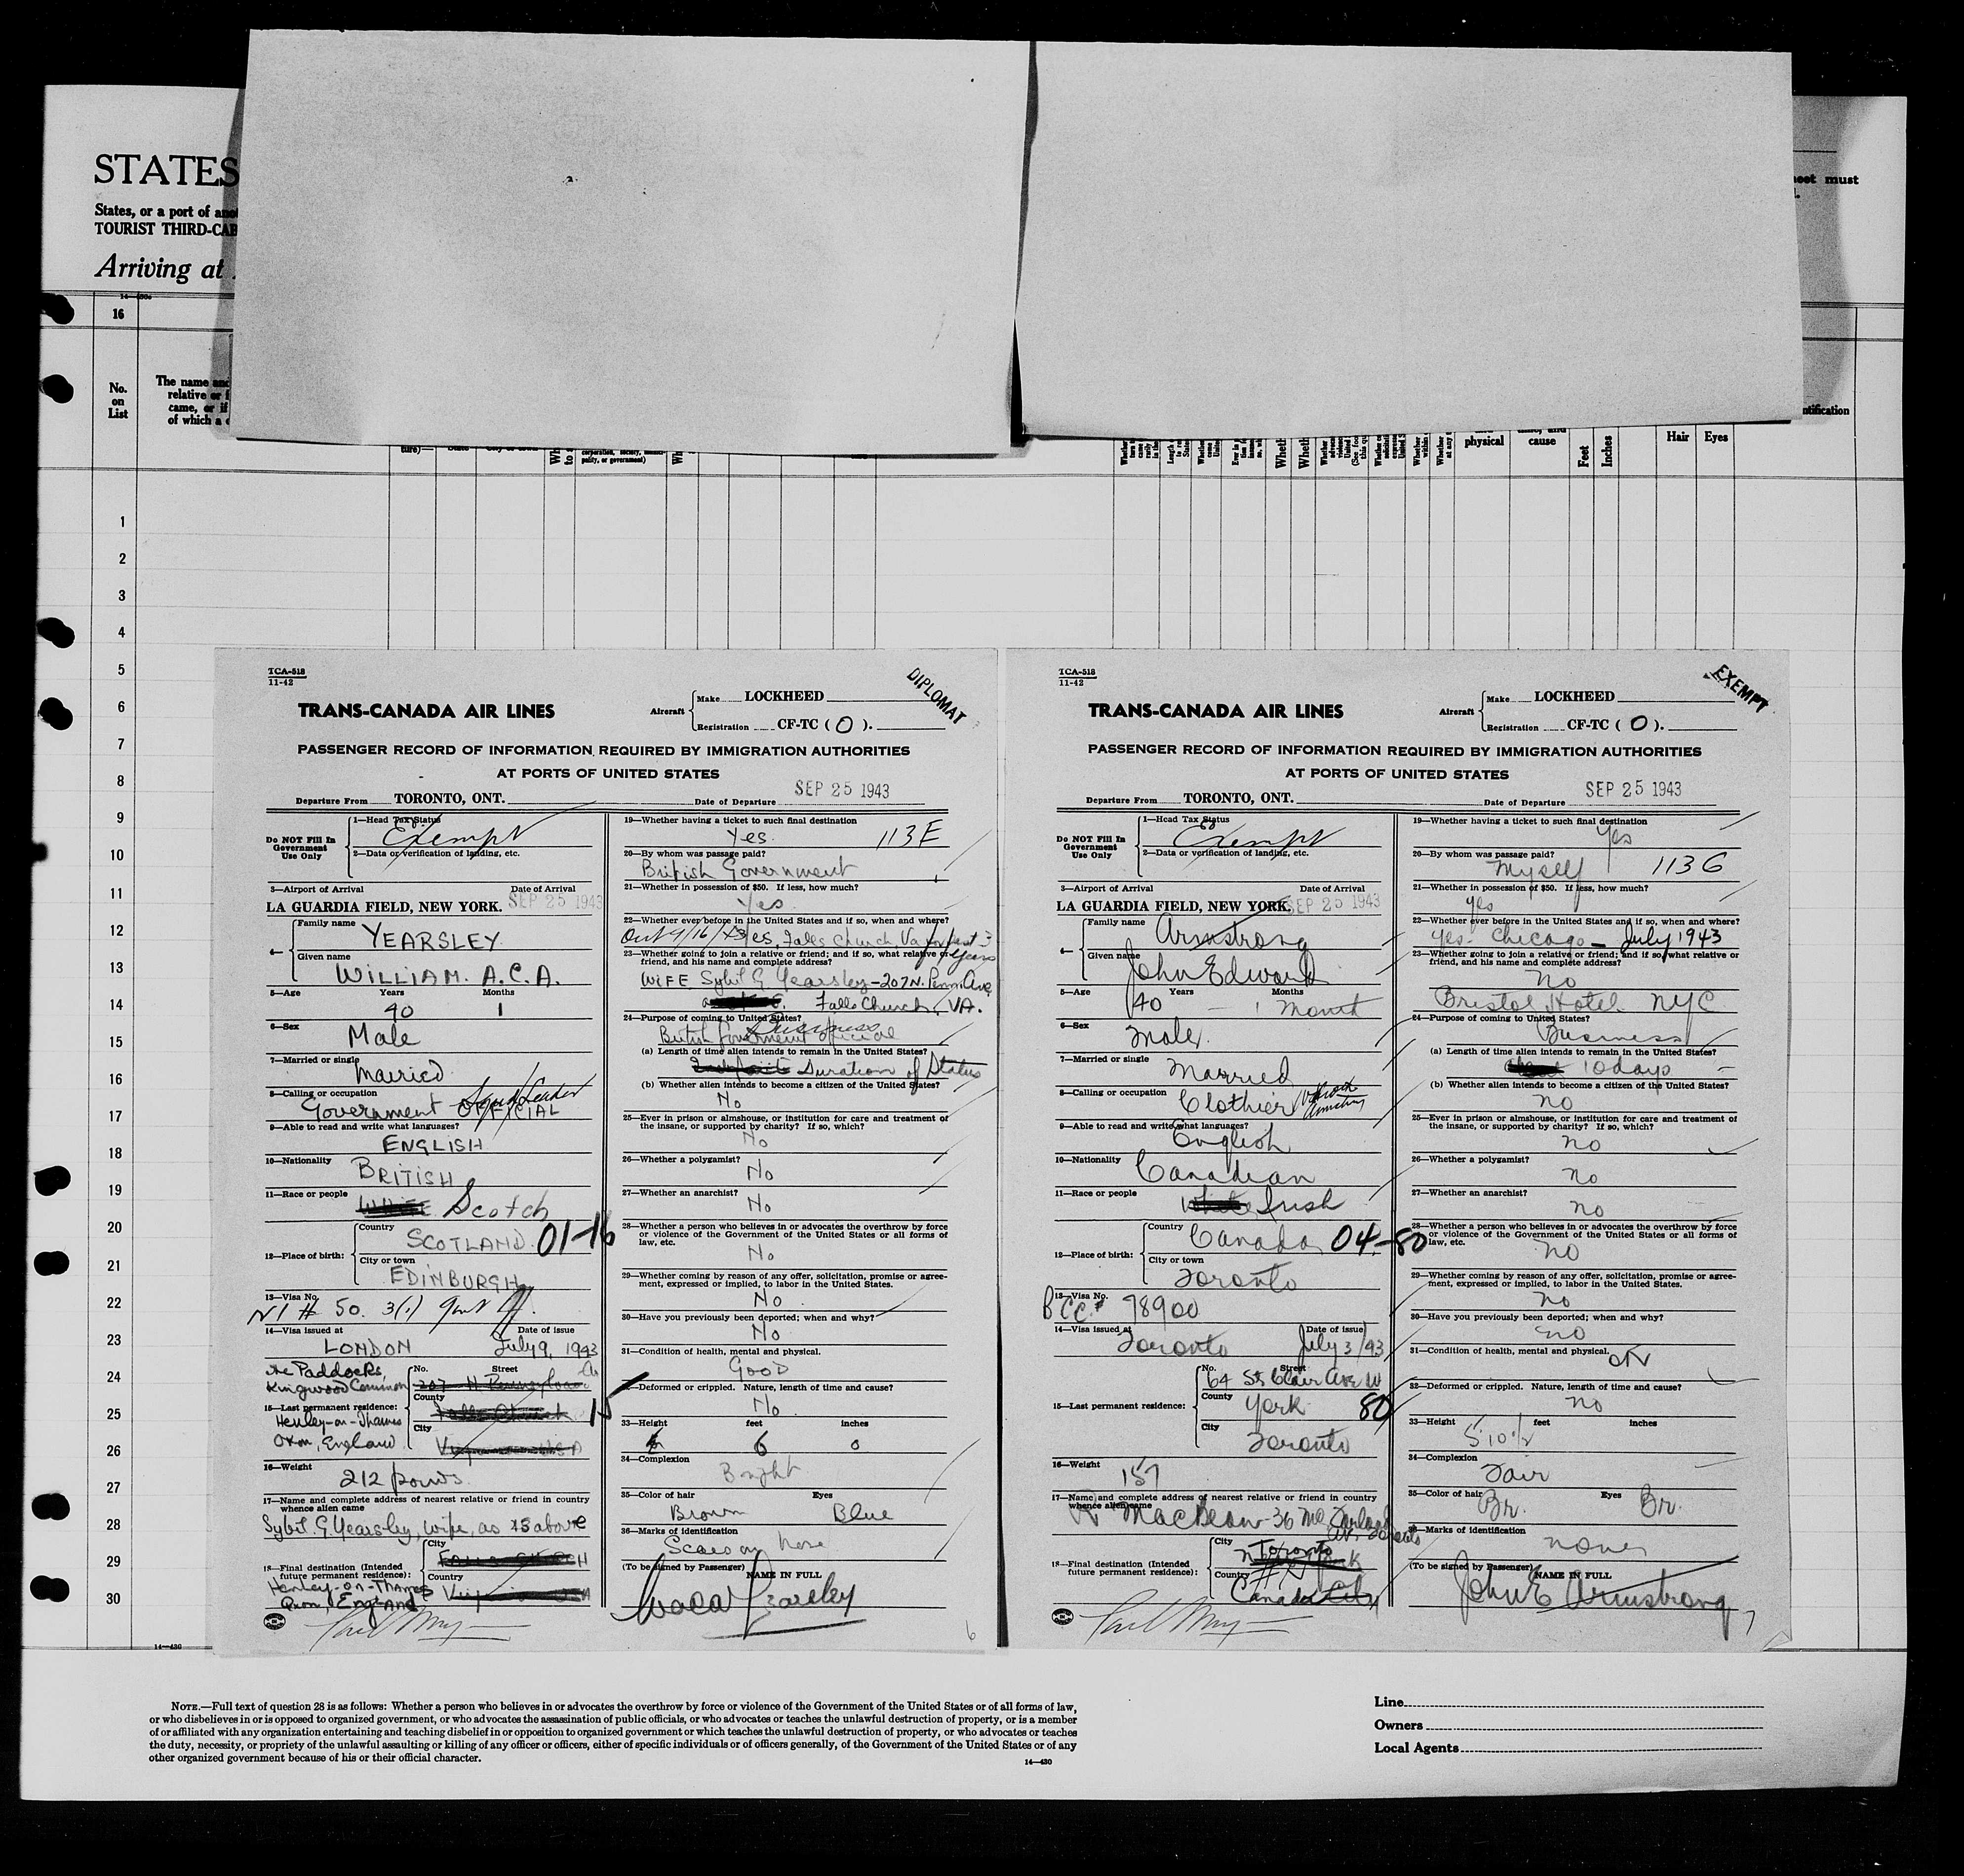 STATES
States, or a port of
TOURIST THIRD-CAB
Arriving at
must
16
No.
on
List
The name and
relative or
came, or if
of which a
ture)—
corporation, society,
pality, or government)
physical
cause
Feet
Inches
Hair
Eyes
1
2
3
4
5
6
7
8
9
10
11
12
13
14
15
16
17
18
19
20
21
22
23
24
25
26
27
28
29
30
TCA-518
11-42
DIPLOMAT
TRANS-CANADA AIR LINES
Aircraft
Make LOCKHEED
Registration CF-TC ( O ).
PASSENGER RECORD OF INFORMATION REQUIRED BY IMMIGRATION AUTHORITIES
AT PORTS OF UNITED STATES
Departure From TORONTO, ONT.
Date of Departure SEP 25 1943
Do NOT Fill In
Government
Use Only
1—Head Tax Status
Exempt
2—Data or verification of landing, etc.
3—Airport of Arrival Date of Arrival
LA GUARDIA FIELD, NEW YORK. SEP 25 1943
4— Family name
YEARSLEY
Given name
WILLIAM. A.C.A.
5—Age Years Months
40 1
6—Sex
Male
7—Married or single
Married
8—Calling or occupation
Government OFFICIAL Squad Leader
9—Able to read and write what languages?
ENGLISH
10—Nationality
BRITISH
11—Race or people
WHITE Scotch
12—Place of birth:
Country
SCOTLAND 01-16
City or town
EDINBURGH
13—Visa No.
NI # 50. 3(1) Gvt
14—Visa issued at Date of issue
LONDON July 9, 1943
The Paddocks,
Kingwood Common
15—Last permanent residence:
Henley-on-Thames
Oxon, England
No. Street
207 N Pennsylvania Av
County
Falls Church 15
City
Virginia USA
16—Weight
212 pounds
17—Name and complete address of nearest relative or friend in country
whence alien came
Sybil. G. Yearsley, wife, as 15 above
18—Final destination (Intended
future permanent residence):
Henley-on-Thames
Oxon, England
City
FALLS CHURCH
Country
Virginia USA
19—Whether having a ticket to such final destination
Yes. 113E
20—By whom was passage paid?
British Government
21—Whether in possession of $50. If less, how much?
Yes.
22—Whether ever before in the United States and if so, when and where?
Out 9/16/43 Yes, Falls Church, Va for past 3 years
23—Whether going to join a relative or friend; and if so, what relative or
friend, and his name and complete address?
WIFE Sybil G Yearsley - 207 N. Penn. Ave
Falls Church, VA.
24—Purpose of coming to United States?
Business
British Government Official
(a) Length of time alien intends to remain in the United States?
Indefinite Duration of Status
(b) Whether alien intends to become a citizen of the United States?
No
25—Ever in prison or almshouse, or institution for care and treatment of
the insane, or supported by charity? If so, which?
No
26—Whether a polygamist?
No
27—Whether an anarchist?
No
28—Whether a person who believes in or advocates the overthrow by force
or violence of the Government of the United States or all forms of
law, etc.
No
29—Whether coming by reason of any offer, solicitation, promise or agree-
ment, expressed or implied, to labor in the United States.
No.
30—Have you previously been deported; when and why?
No
31—Condition of health, mental and physical.
GOOD
32—Deformed or crippled. Nature, length of time and cause?
No.
33—Height feet inches
6 0
34—Complexion
Bright
35—Color of hair Eyes
Brown Blue
36—Marks of identification
Scar on
(To be signed by Passenger) NAME IN FULL
Waca Yearsley
6
TCA-518
11-42
EXEMPT
TRANS-CANADA AIR LINES
Aircraft
Make LOCKHEED
Registration CF-TC ( O ).
PASSENGER RECORD OF INFORMATION REQUIRED BY IMMIGRATION AUTHORITIES
AT PORTS OF UNITED STATES
Departure From TORONTO, ONT.
Date of Departure SEP 25 1943
Do NOT Fill In
Government
Use Only
1—Head Tax Status
Exempt
2—Data or verification of landing, etc.
3—Airport of Arrival Date of Arrival
LA GUARDIA FIELD, NEW YORK. SEP 25 1943
4— Family name
Armstrong
Given name
John Edward
5—Age Years Months
40 - 1 Month
6—Sex
Male.
7—Married or single
Married
8—Calling or occupation
Clothier
9—Able to read and write what languages?
English
10—Nationality
Canadian
11—Race or people
White Irish
12—Place of birth:
Country
Canada 04-80
City or town
Toronto
13—Visa No.
BCC# 78900
14—Visa issued at Date of issue
Toronto July 3/43
15—Last permanent residence:
No. Street
64 St Clair Ave W
County
York 80
City
Toronto
16—Weight
157
17—Name and complete address of nearest relative or friend in country
whence alien came
R MacBean - 36
18—Final destination (Intended
future permanent residence):
City
Toronto
Country
Canada
19—Whether having a ticket to such final destination
Yes
20—By whom was passage paid?
Myself 113G
21—Whether in possession of $50. If less, how much?
yes
22—Whether ever before in the United States and if so, when and where?
yes - Chicago - July 1943
23—Whether going to join a relative or friend; and if so, what relative or
friend, and his name and complete address?
No
Bristol Hotel NYC
24—Purpose of coming to United States?
Business
(a) Length of time alien intends to remain in the United States?
10 days
(b) Whether alien intends to become a citizen of the United States?
no
25—Ever in prison or almshouse, or institution for care and treatment of
the insane, or supported by charity? If so, which?
no
26—Whether a polygamist?
no
27—Whether an anarchist?
no
28—Whether a person who believes in or advocates the overthrow by force
or violence of the Government of the United States or all forms of
law, etc.
no
29—Whether coming by reason of any offer, solicitation, promise or agree-
ment, expressed or implied, to labor in the United States.
no
30—Have you previously been deported; when and why?
no
31—Condition of health, mental and physical.
OK
32—Deformed or crippled. Nature, length of time and cause?
no
33—Height feet inches
5'10½
34—Complexion
Fair
35—Color of hair Eyes
Br. Br.
36—Marks of identification
none
(To be signed by Passenger) NAME IN FULL
John E Armstrong
7
14—430
NOTE.—Full text of question 28 is as follows: Whether a person who believes in or advocates the overthrow by force or violence of the Government of the United States or of all forms of law,
or who disbelieves in or is opposed to organized government, or who advocates the assassination of public officials, or who advocates or teaches the unlawful destruction of property, or is a member
of or affiliated with any organization entertaining and teaching disbelief in or opposition to organized government or which teaches the unlawful destruction of property, or who advocates or teaches
the duty, necessity, or propriety of the unlawful assaulting or killing of any officer or officers, either of specific individuals or of officers generally, of the Government of the United States or of any
other organized government because of his or their official character.
14—430
Line
Owners
Local Agents